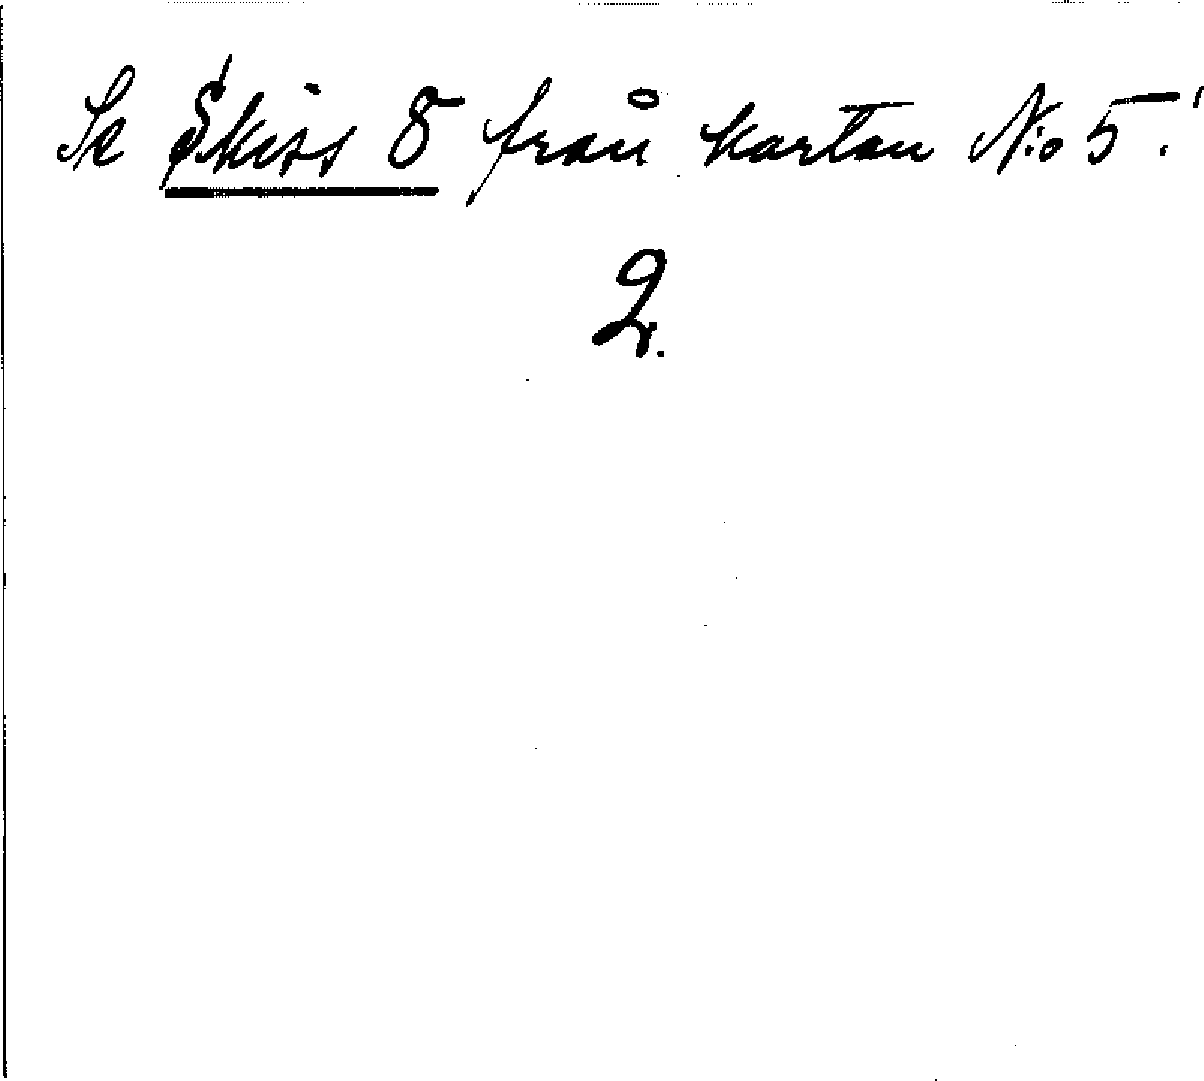 Se Skiss 8 från kartan N:o 5.!
2.